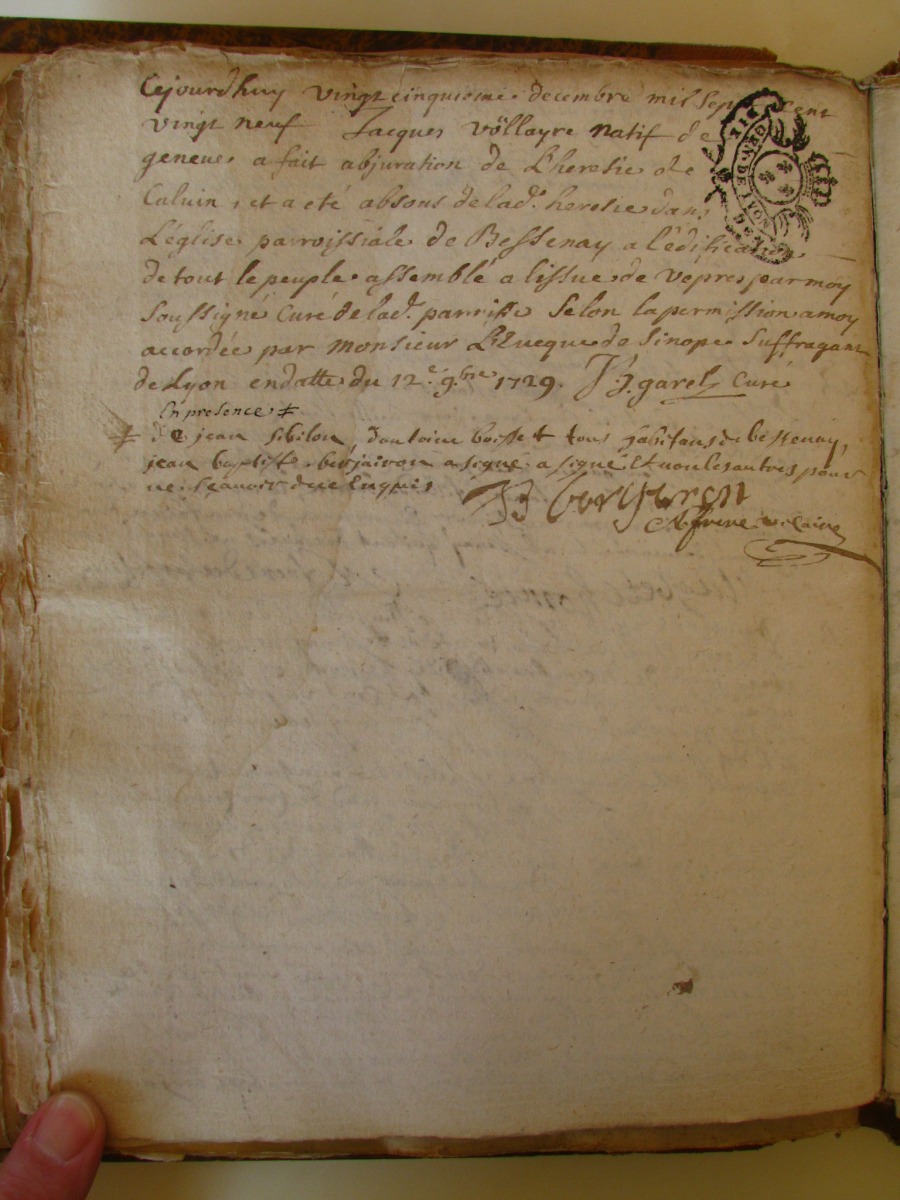 Cejourdhuy vingt cinquieme decembre mil sept cent
vingt neuf Jacques Völlayre natif de
geneve a fait abjuration de L'heresie de
Calvin, et a eté absous de lad. heresie dans
L'église parroissiale de Bessenay a l'édification
de tout le peuple assemblé a lissue de vepres par moy
Soussigné Curé de lad. parrisse Selon la permission a moy
accordée par Monsieur L'Eveque de Sinope Suffragant
de Lyon en datte du 12e 9bre 1729. JB garel Curé
En presence ‡
‡ de jean Sibilon, dantoine boisset tous habitans de bessenay,
jean baptiste berjairon a signé a signé Et non les autres pour
ne Scavoir de ce Enquis
JB
vicaire
GEN. DE LYON